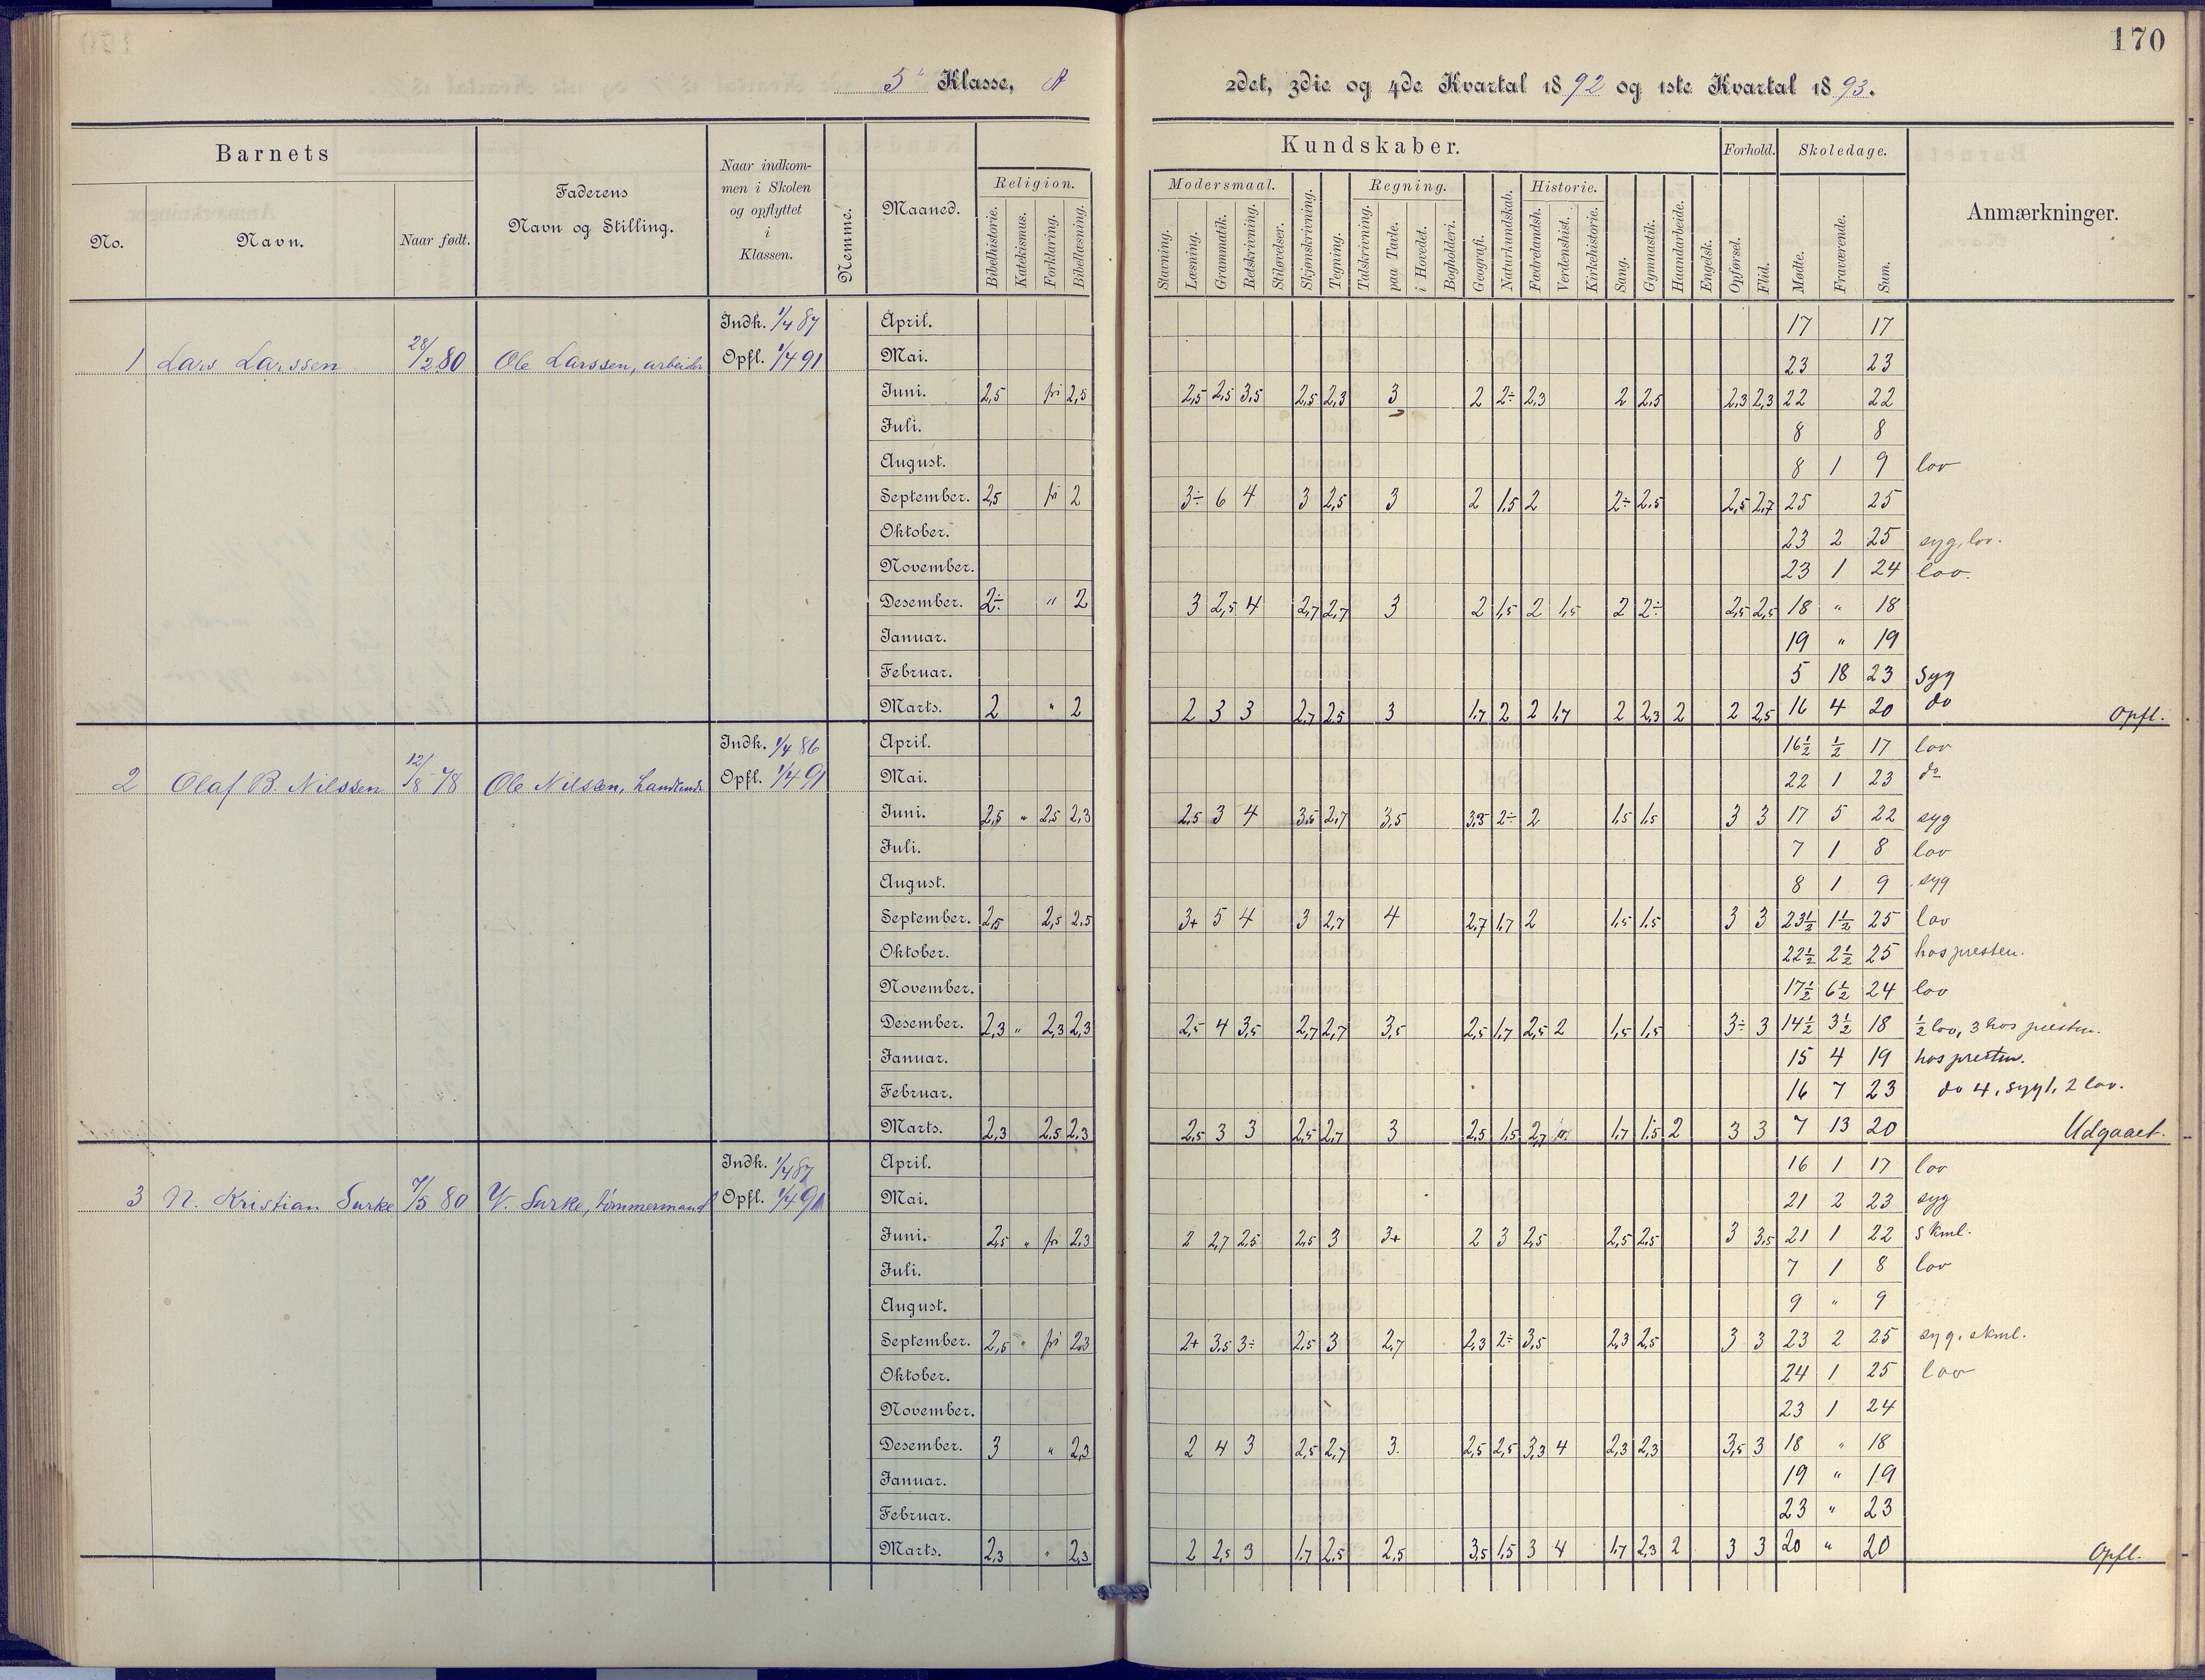 170
5te Klasse, A 2det, 3die og 4de Kvartal 1892 og 1ste Kvartal 1893.
Barnets
No.
Navn.
Naar født.
Faderens
Navn og Stilling.
Naar indkom-
men i Skolen
og opflyttet
i
Klassen.
Nemme.
Maaned.
Kundskaber.
Religion.
Bibelhistorie.
Katekismus.
Forklaring.
Bibellæsning.
Modersmaal.
Stavning.
Læsning.
Grammatik.
Retskrivning.
Stiløvelser.
Skjønskrivning.
Tegning.
Regning.
Talskrivning.
paa Tavle.
i Hovedet.
Bogholderi.
Geografi.
Naturkundskab.
Historie.
Fædrelandsh.
Verdenshist.
Kirkehistorie.
Sang.
Gymnastik.
Haandarbeide.
Engelsk.
Forhold.
Opførsel.
Flid.
Skoledage.
Mødte.
Fraværende.
Sum.
Anmærkninger.
Indk. 1/4 87 April. 17 17
1 Lars Larssen 28/2 80 Ole Larssen, arbeider Opfl. 1/4 91 Mai. 23 23
Juni. 2,5 fri 2,5 2,5 2,5 3,5 2,5 2,3 3 2 2÷ 2,3 2 2,5 2,3 2,3 22 22
Juli. 8 8
August. 8 1 9 lov
September. 2,5 fri 2 3÷ 6 4 3 2,5 3 2 1,5 2 2÷ 2,5 2,5 2,7 25 25
Oktober. 23 2 25 syg, lov.
November. 23 1 24 lov.
Desember. 2÷ " 2 3 2,5 4 2,7 2,7 3 2 1,5 2 1,5 2 2÷ 2,5 2,5 18 " 18
Januar. 19 " 19
Februar. 5 18 23 Syg
Marts. 2 " 2 2 3 3 2,7 2,5 3 1,7 2 2 1,7 2 2,3 2 2 2,5 16 4 20 do Opfl.
Indk. 1/4 86 April. 16½ ½ 17 lov
2 Olaf B. Nilssen 12/8 78 Ole Nilssen, Opfl. 1/4 91 Mai. 22 1 23 do
Juni. 2,5 " 2,5 2,3 2,5 3 4 3,5 2,7 3,5 3,5 2÷ 2 1,5 1,5 3 3 17 5 22 syg
Juli. 7 1 8 lov
August. 8 1 9 syg
September. 2,5 2,5 2,5 3+ 5 4 3 2,7 4 2,7 1,7 2 1,5 1,5 3 3 23½ 1½ 25 lov
Oktober. 22½ 2½ 25 hos presten.
November. 17½ 6½ 24 lov
Desember. 2,3 " 2,3 2,3 2,5 4 3,5 2,7 2,7 3,5 2,5 1,7 2,5 2 1,5 1,5 3÷ 3 14½ 3½ 18 ½ lov, 3 hos presten.
Januar. 15 4 19 hos presten.
Februar. 16 7 23 do 4, syg 1, 2 lov.
Marts. 2,3 2,5 2,3 2,5 3 3 2,5 2,7 3 2,5 1,5 2,7 " 1,7 1,5 2 3 3 7 13 20 Udgaaet.
Indk. 1/4 87 April. 16 1 17 lov
3 N. Kristian Surke 7/5 80 Surke, tømmermand Opfl. 1/4 91 Mai. 21 2 23 syg
Juni. 2,5 " fri 2,3 2 2,7 2,5 2,5 3 3+ 2 3 2,5 2,5 2,5 3 3,5 21 1 22 skml.
Juli. 7 1 8 lov
August. 9 " 9
September. 2,5 " fri 2,3 2+ 3,5 3÷ 2,5 3 2,7 2,3 2÷ 3,5 2,3 2,5 3 3 23 2 25 syg. skml.
Oktober. 24 1 25 lov
November. 23 1 24
Desember. 3 " 2,3 2 4 3 2,5 2,7 3 2,5 2,5 3,3 4 2,3 2,3 3,5 3 18 " 18
Januar. 19 " 19
Februar. 23 " 23
Marts. 2,3 " 2,3 2 2,5 3 1,7 2,5 2,5 3,5 1,5 3 4 1,7 2,3 2 3 3 20 " 20 Opfl.